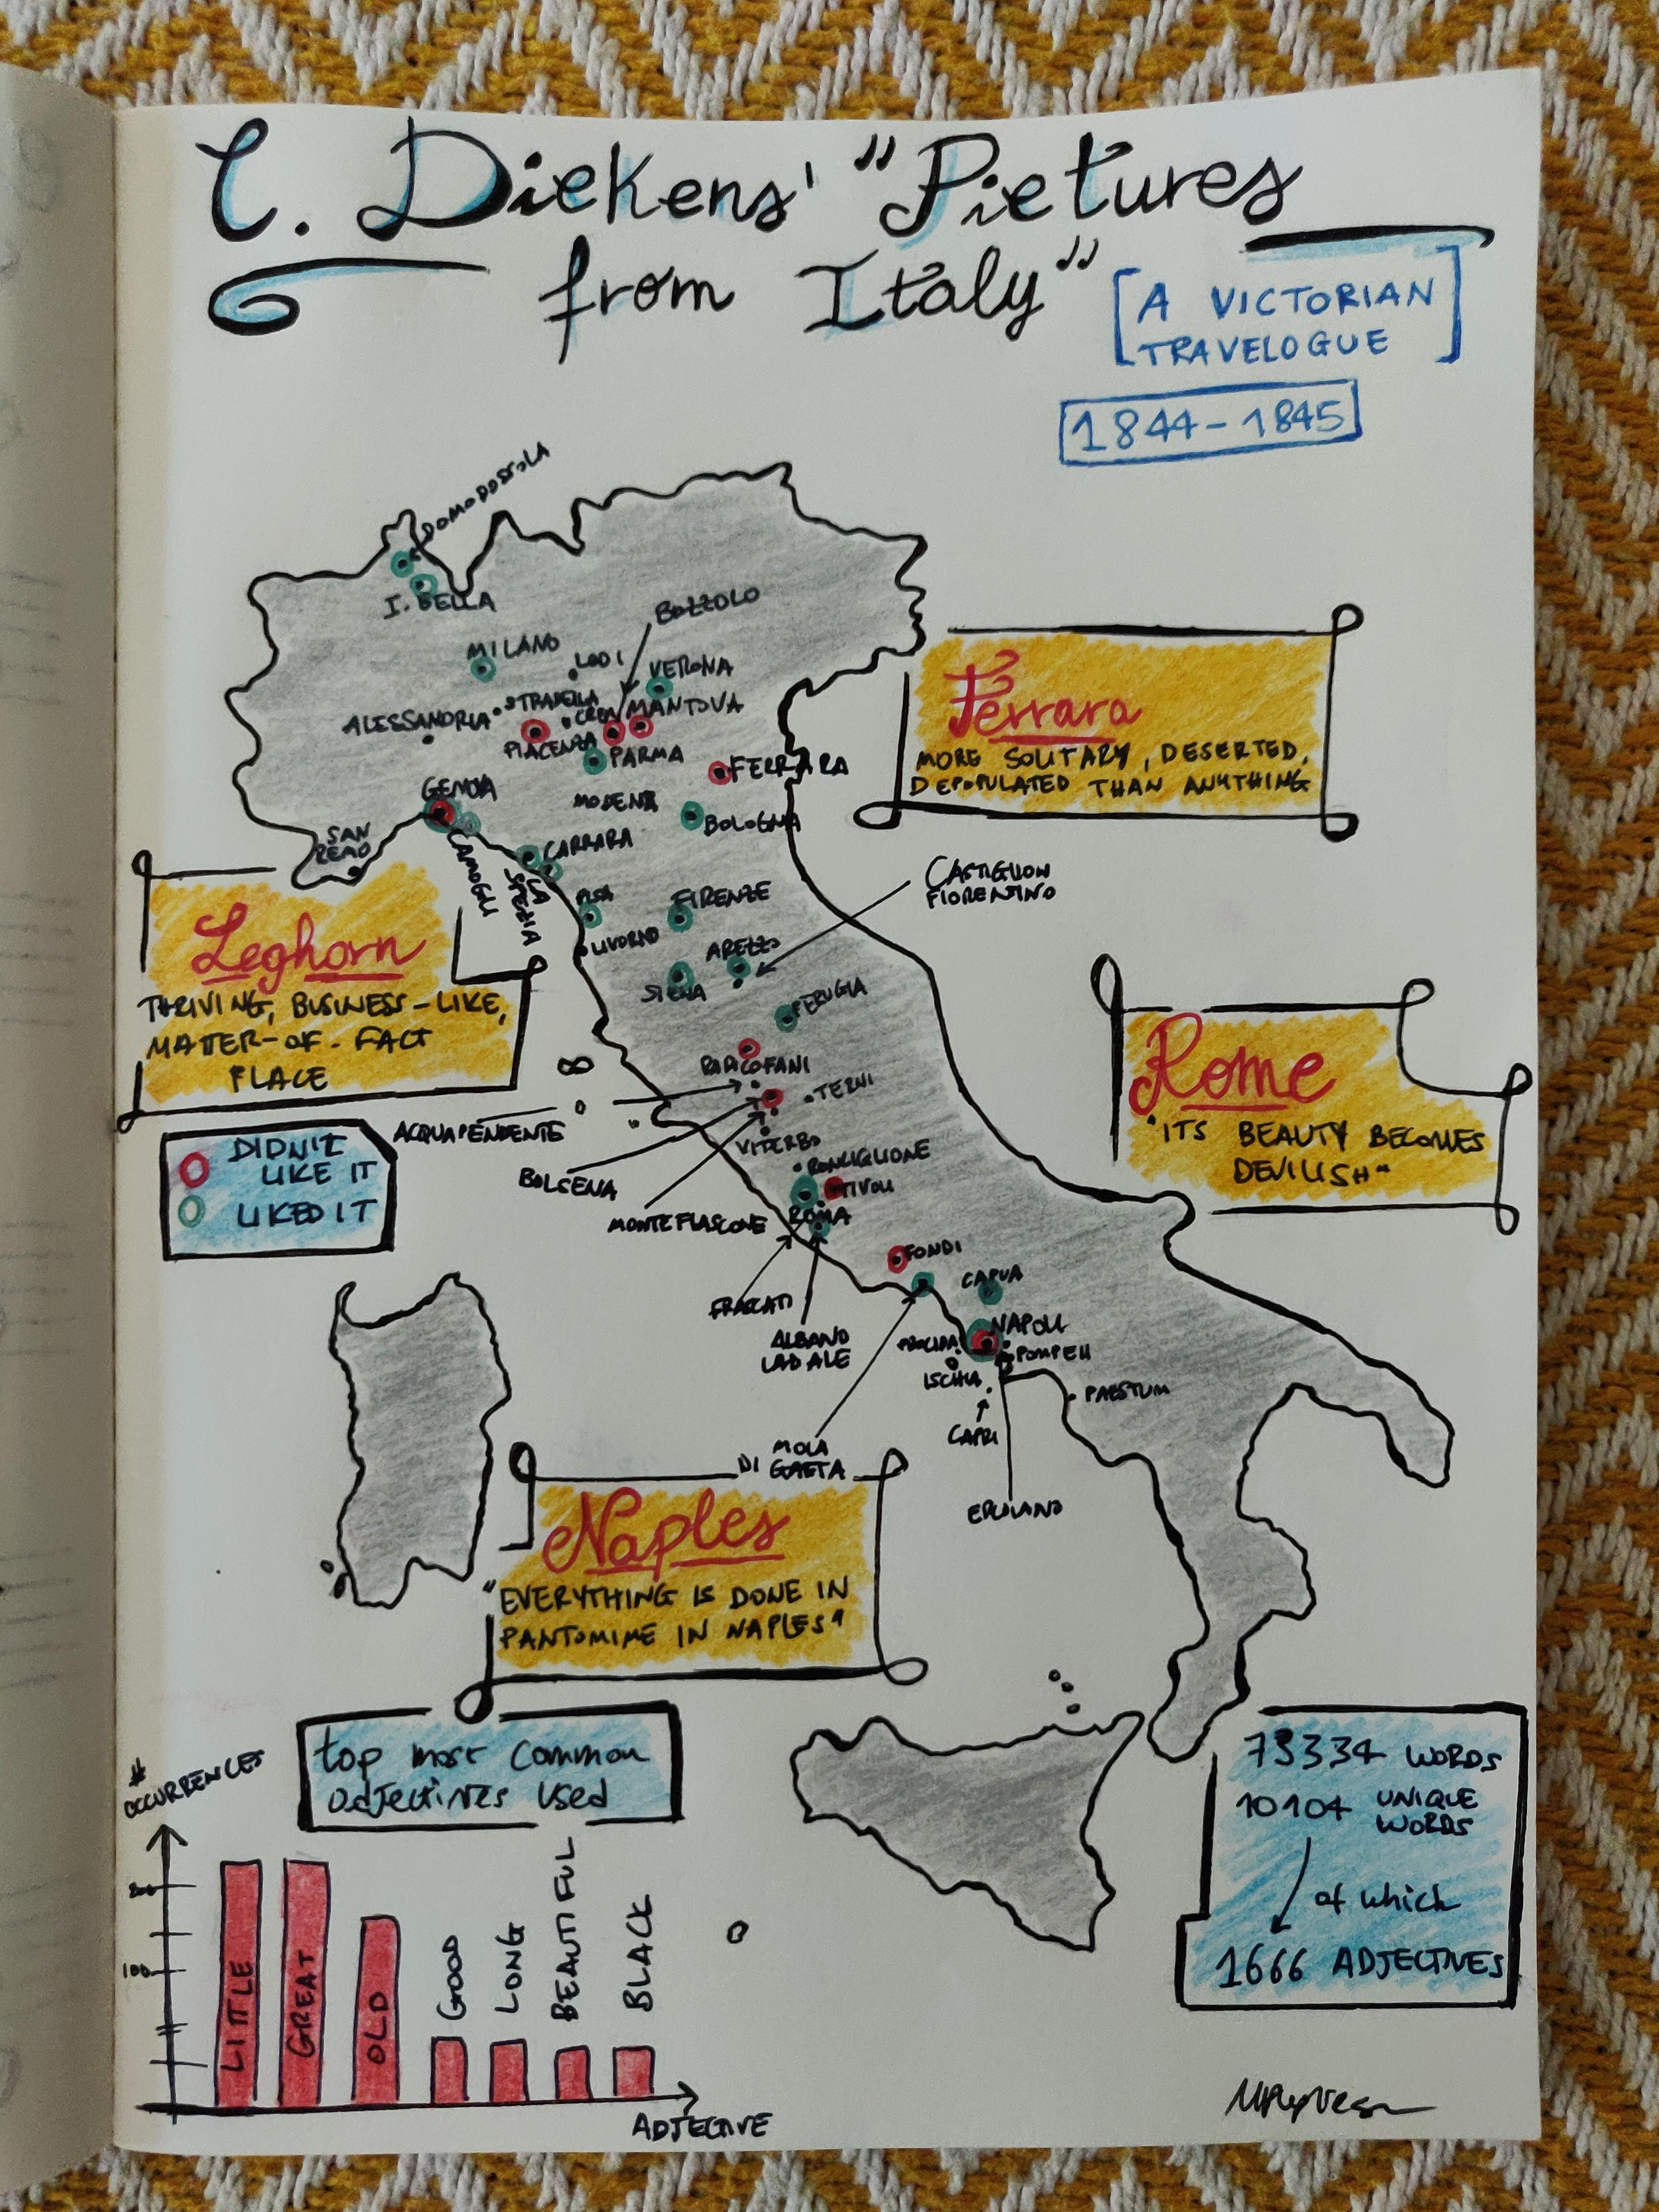 C. Dickens' "Pictures
from Italy"
[A VICTORIAN
TRAVELOGUE]
1844-1845
DOMODOSSOLA
I. BELLA
BOZZOLO
MILANO
LODI
VERONA
STRADELLA
MANTOVA
ALESSANDRIA
PIACENZA
PARMA
FERRARA
GENOVA
MODENA
BOLOGNA
SAN
REMO
CAMOGLI
CARRARA
LA
SPEZIA
PISA
FIRENZE
LIVORNO
AREZZO
CASTIGLION
FIORENTINO
SIENA
PERUGIA
RADICOFANI
TERNI
ACQUAPENDENTE
VITERBO
BOLSENA
RONCIGLIONE
MONTEFIASCONE
TIVOLI
ROMA
FRASCATI
ALBANO
LAZIALE
FONDI
CAPUA
NAPOLI
PROCIDA
POMPEII
ISCHIA
CAPRI
PAESTUM
MOLA
DI GAETA
ERCOLANO
Ferrara
MORE SOLITARY, DESERTED,
DEPOPULATED THAN ANYTHING
Leghorn
THRIVING, BUSINESS-LIKE,
MATTER-OF-FACT
PLACE
Rome
"ITS BEAUTY BECOMES
DEVILISH"
DIDN'T
LIKE IT
LIKED IT
Naples
"EVERYTHING IS DONE IN
PANTOMIME IN NAPLES"
top most common
adjectives used
# OCCURRENCES
200
100
LITTLE
GREAT
OLD
GOOD
LONG
BEAUTIFUL
BLACK
ADJECTIVE
73334 WORDS
10104 UNIQUE
WORDS
of which
1666 ADJECTIVES